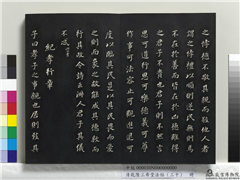 之悖德不敬其親而敬他人者
謂之悖禮以順則逆民無則焉
不在於善而皆在於凶德雖得
之君子不貴也君子則不然言
思可道行思可樂德義可尊
作事可法容止可觀進退可
度以臨其民是以其民畏而愛
之則而象之故能成其德教而
行其政令詩云淑人君子其儀
不忒
紀孝行章
子曰孝子之事親也居則致其
清乾隆三希堂法帖(二十) 冊